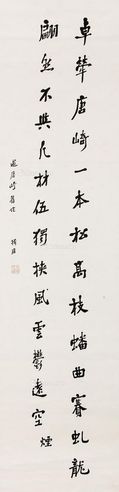 卓犖唐崎一本松高枝蟠曲寨虬龍
翩然不與凡材伍獨挾風雲鬱遠空煙
遊唐崎舊作